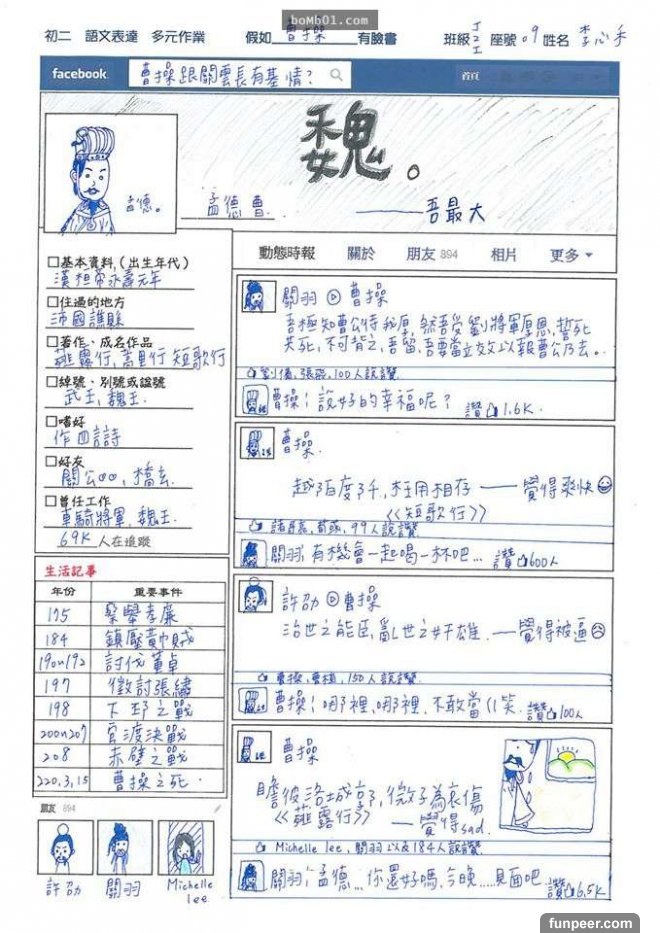 boMb01.com
初二 語文表達 多元作業 假如曹操有臉書 班級 座號09姓名 李心禾
facebook 曹操跟關雲長有基情? 首頁
魏。
孟德。
孟德曹
——吾最大
動態時報 關於 朋友 894 相片 更多
□基本資料,(出生年代)
漢桓帝永壽元年
□住過的地方
沛國譙縣
□著作、成名作品
薤露行,蒿里行 短歌行
□綽號、別號或諡號
武王,魏王.
□嗜好
作四言詩
□好友
關公, 橋玄.
□曾任工作
車騎將軍,魏王.
69K 人在追蹤
生活記事
年份 重要事件
175 舉孝廉
184 鎮壓黃巾賊
190~192 討伐董卓
197 徵討張繡
198 下邳之戰
200~207 官渡決戰
208 赤壁之戰
220.3.15 曹操之死.
朋友 894
許劭 關羽 Michelle lee
關羽 曹操
吾極知曹公待我厚,然吾受劉將軍厚恩,誓死
共死,不可背之,吾留,吾要當立效以報曹公乃去。
劉備,張飛,100人說讚
曹操:說好的幸福呢? 讚 1.6K.
曹操.
越陌度阡,枉用相存 ——覺得爽快
《短歌行》
諸葛亮,荀彧,99人說讚
關羽:有機會一起喝一杯吧... 讚 600人
許劭 曹操
治世之能臣,亂世之奸雄. ——覺得被逼
曹操,曹植,150人說讚
曹操:哪裡,哪裡,不敢當((笑. 讚 100人
曹操
瞻彼洛城郭,微子為哀傷
《薤露行》 ——覺得sad.
Michelle lee,關羽以及184人說讚.
關羽:孟德...你還好嗎,今晚....見面吧. 讚 6.5K
funpeer.com